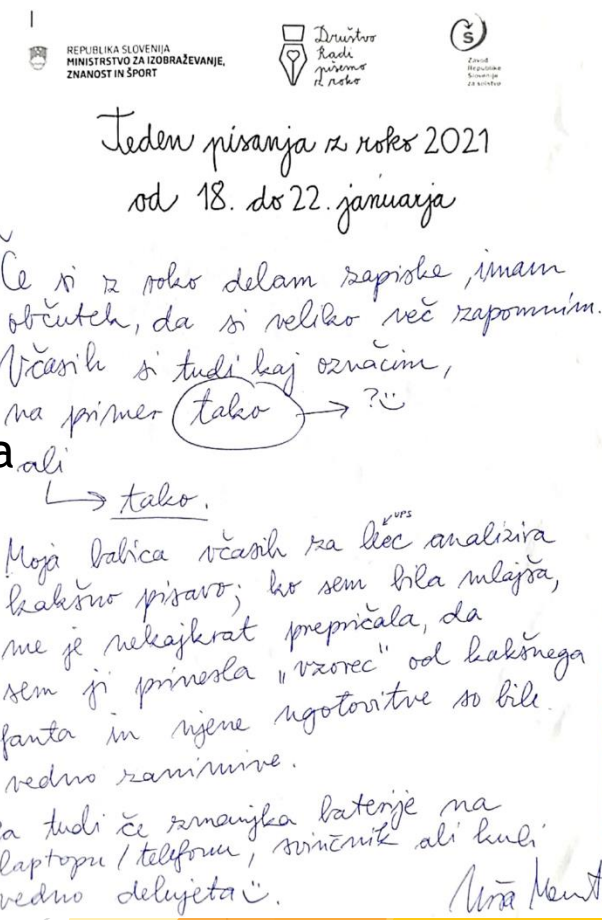 REPUBLIKA SLOVENIJA
MINISTRSTVO ZA IZOBRAŽEVANJE,
ZNANOST IN ŠPORT
Društvo
Radi
pišemo
z roko
Zavod
Republike
Slovenije
za šolstvo
Teden pisanja z roko 2021
od 18. do 22. januarja
Če si z roko delam zapiske, imam
občutek, da si veliko več zapomnim.
Včasih si tudi kaj označim,
na primer tako → ?☺
a ali
↳ tako.
UPS
Moja babica včasih za hec analizira
kakšno pisavo; ko sem bila mlajša,
me je nekajkrat prepričala, da
sem ji prinesla "vzorec" od kakšnega
fanta in njene ugotovitve so bile
vedno zanimive.
a tudi če zmanjka baterije na
laptopu / telefonu, svinčnik ali kuli
vedno delujeta ☺.